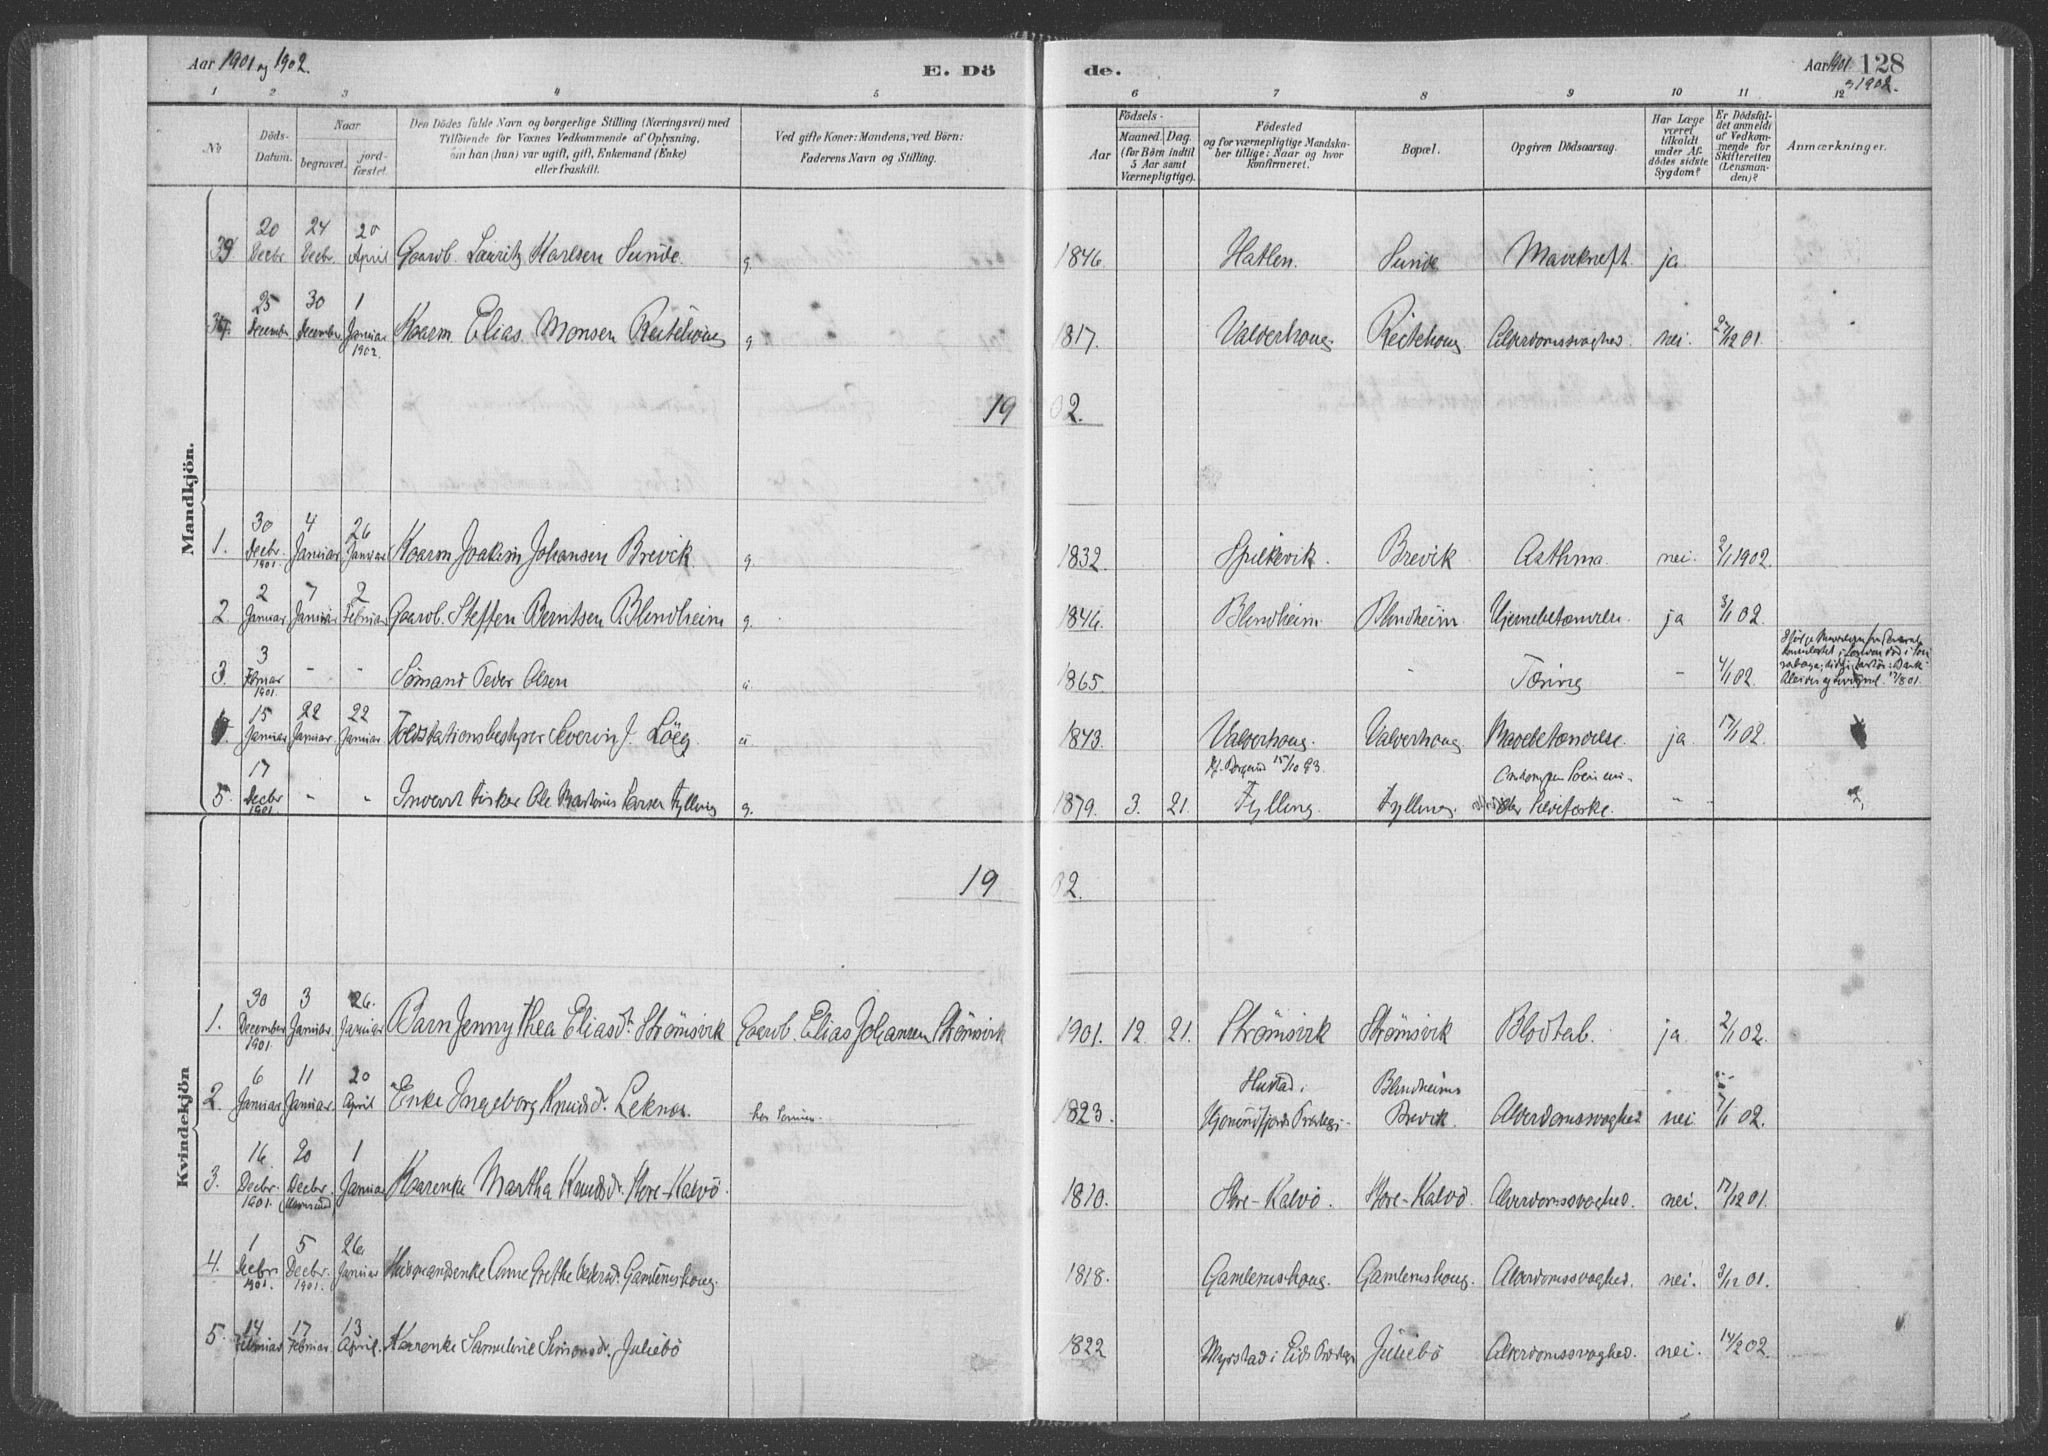 Aar 1901 og 1902.
E. Döde.
Aar 1901 128
og 1902.
1 2 3 4 5 6 7 8 9 10 11 12
No
Döds-Datum.
Naar
begravet.
jord-fæstet.
Den Dödes fulde Navn og borgerlige Stilling (Næringsvei) med
Tilföiende for Voxnes Vedkommende af Oplysning,
om han (hun) var ugift, gift, Enkemand (Enke)
eller fraskilt.
Ved gifte Koner: Mandens, ved Börn:
Faderens Navn og Stilling.
Födsels-
Aar
Maaned. Dag.
(for Börn indtil
5 Aar samt
Værnepligtige).
Födested
og for værnepligtige Mandska-
ber tillige: Naar og hvor
konfirmeret.
Bopæl.
Opgiven Dödsaarsag.
Har Læge
været
tilkaldt
under Af-
dödes sidste
Sygdom?
Er Dödsfal-
det anmeldt
af Vedkom-
mende for
Skifteretten
(Lensman-
den)?
Anmærkninger.
Mandkjön.
20 Decbr. 24 Decbr. 20 April Gaardb. Lauritz Karlsen Sunde. g. 1846. Hatlen. Sunde Mavekræft. ja
25 December 30 December 1 Januar 1902. Kaarm. Elias Monsen Reitehoug g. 1817. Valderhoug. Reitehoug Alderdomssvaghed. nei. 27/12 01.
1902.
1. 30 Decbr. 1901. 4 Januar 26 Januar Kaarm Joakim Johansen Brevik g. 1832. Spilkevik. Brevik Asthma. nei. 2/1 1902.
2 2 Januar 7 Januar 2 Februar Gaardb. Steffen Berntsen Blindheim g. 1846. Blindheim Blindheim Hjernebetændelse ja 3/1 02.
3. 3 Februar 1901. - - Sømand Peder Olsen u. 1865. Tæring - 4/1 02.
15 Januar 22 Januar 22 Januar Toldstationsbestyrer Severin J. Löeg. u 1843. Valderhoug. Valderhoug Mavebetændelse. ja. 17/1 02.
5. 17 Decbr 1901. - - Inderst Fisker Ole Martinus Larsen Fylling g. 1879. 3. 21. Kf. Borgund 15/10 93. Fylling. Fylling. - -
1902.
Kvindekjön
1. 30 December 1901. 3 Januar 26. Januar Barn Jenny Thea Eliasdr. Strømsvik Gaardb. Elias Johansen Strømsvik 1901. 12. 21. Strømsvik Strømsvik Blodtab. ja. 2/1 02.
2. 6 Januar 11 Januar 20 April Enke Ingeborg Knudsdr. Leknes. 1823. Hustad i Hjørundfjords Præstegj. Blindheims Brevik. Alderdomssvaghed nei 7/1 02.
3. 16 Decbr. 1901. 20 Decbr. 1 Januar Kaarenke Martha Knudsdr. Store-Kalvö. 1810. Store-Kalvö. Store-Kalvö. Alderdomssvaghed. nei. 17/12 01.
4. 1 Decbr. 1901. 5 Decbr. 1901. 26. Januar Husmandsenke Anne Grethe Pedersdr. Gamlemshoug. 1818. Gamlemshoug. Gamlemshoug. Alderdomssvaghed. nei. 3/12 01.
5. 14 Februar 17 Februar 13 April. Kaarenke Samuline Simonsdr. Juliebö 1822 Myrstad i Eids Præstegj Juliebö Alderdomssvaghed. nei. 14/2 02.